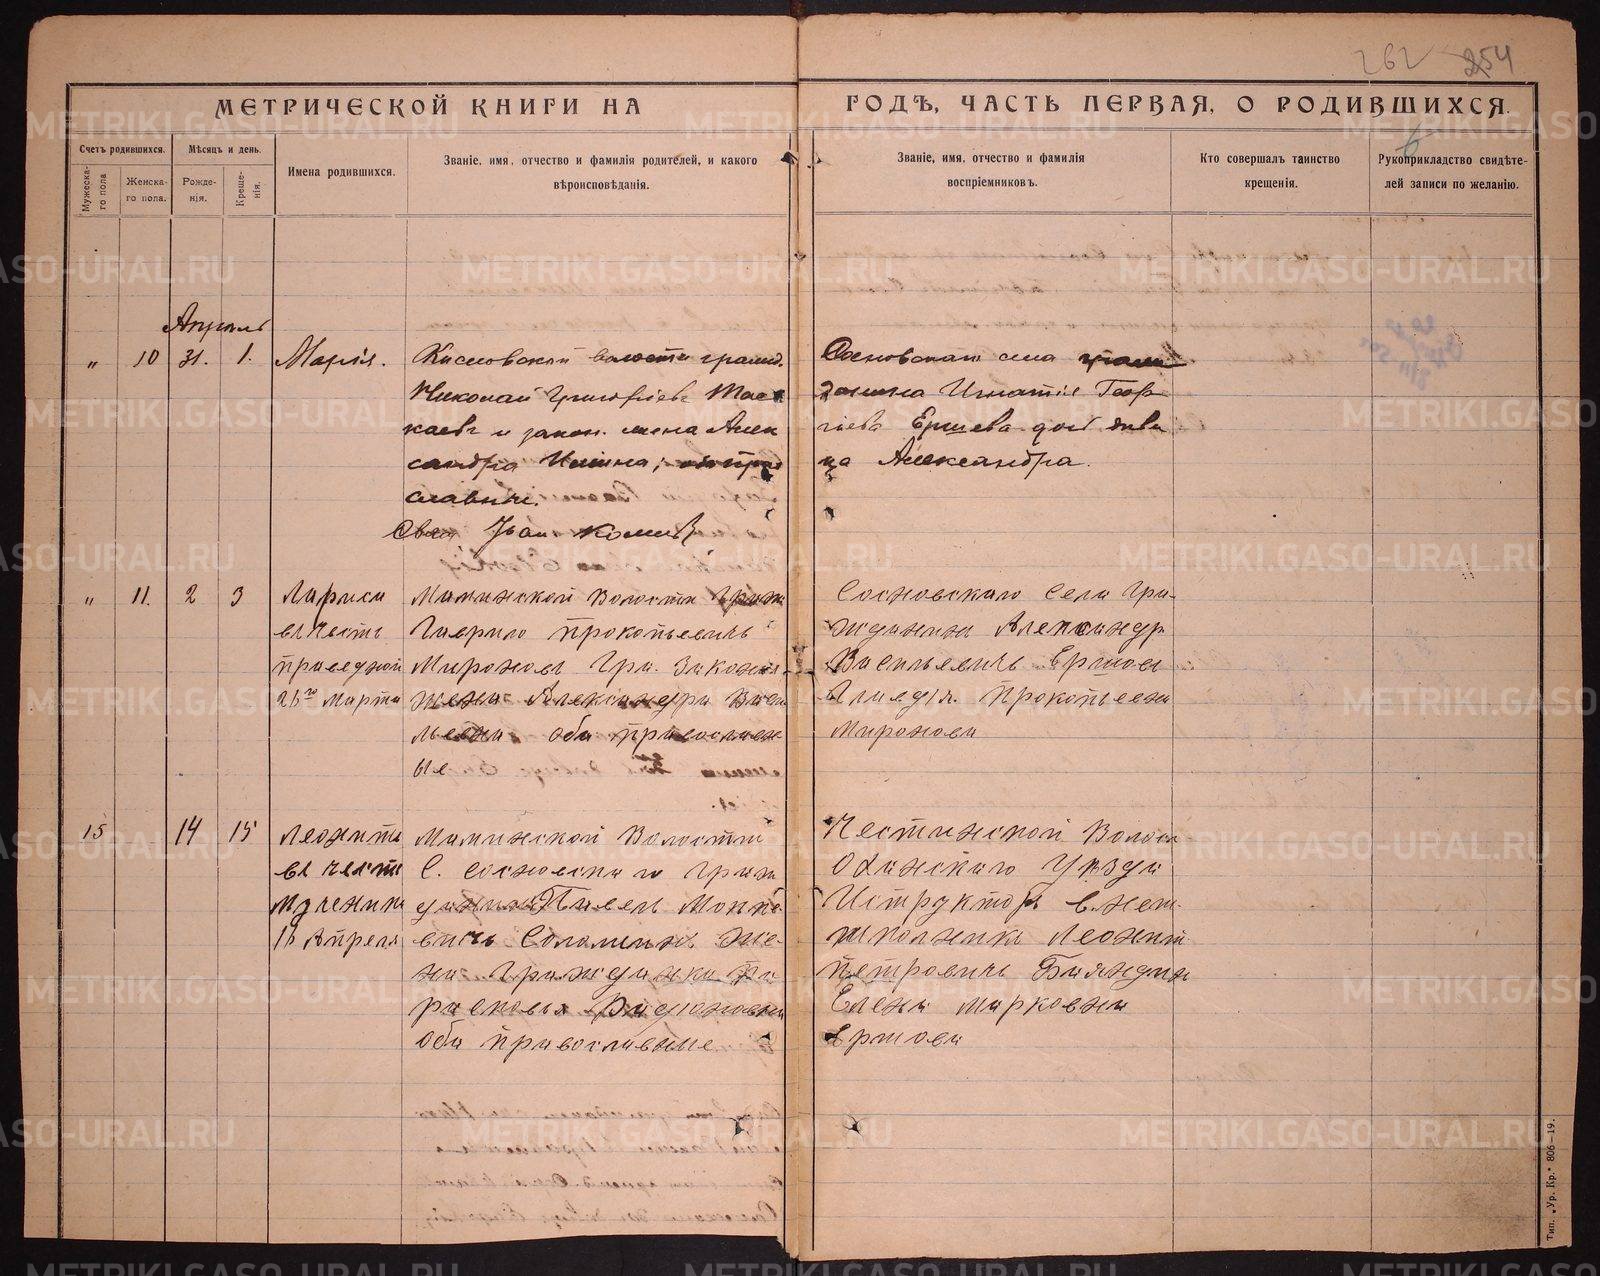 262 254
МЕТРИЧЕСКОЙ КНИГИ НА ГОДЪ, ЧАСТЬ ПЕРВАЯ, О РОДИВШИХСЯ.
6
Счетъ родившихся.
Мужеска-
го пола
Женска-
го пола.
Мѣсяцъ и день.
Рожде-
нія.
Креще-
нія.
Имена родившихся.
Званіе, имя, отчество и фамилія родителей, и какого
вѣроисповѣданія.
Званіе, имя, отчество и фамилія
воспріемниковъ.
Кто совершалъ таинство
крещенія.
Рукоприкладство свидѣте-
лей записи по желанію.
Апрель
„ 10 31. 1.
Марія.
Кисловской волости гражд.
Николай Григоріевъ Тас
каевъ и закон. жена Алек
сандра ; оба право
славные.
Иван
Сосновскаго села граж
данина Игнатія Геор
гіева Ершева дочь деви
ца Александра.
„ 11. 2 3
Лариса
въ честь
праведной
26го Марта
Маминской Волости Граж
Гаврило Прокопьевичъ
Мироновъ Гра. Законная
жена Александра Васи
льевна оба православн
ые
Сосновскаго Села Гра-
жданинъ Александр
Васильевичъ Ершовъ
Клавдія Прокопьевна
Миронова
15 14 15
Леонитъ
въ честь
Мученика
15 Апреля
Маминской Волости
С. Сосновскаго Граж
данинъ Павелъ
вичъ Соломеинъ Же-
на Гражданка Па
расковья Родіоновна
оба православные
Честинской Волости
Оханскаго Уѣзда
Иструкторъ внеш
школникъ Леонит
Петровичъ
Елена Марковна
Ершова
Тип. „Ур. Кр." 806—19.
METRIKI.GASO-URAL.RU